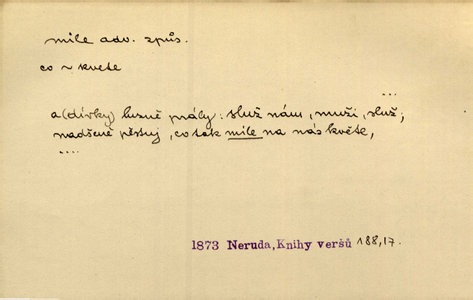 mile adv. způs.
co ~ kvete
...
a (dívky) luzně prály: služ nám, muži, služ,
nadšeně pěstuj, co tak mile na nás květe,
....
1873 Neruda, Knihy veršů 188,17.